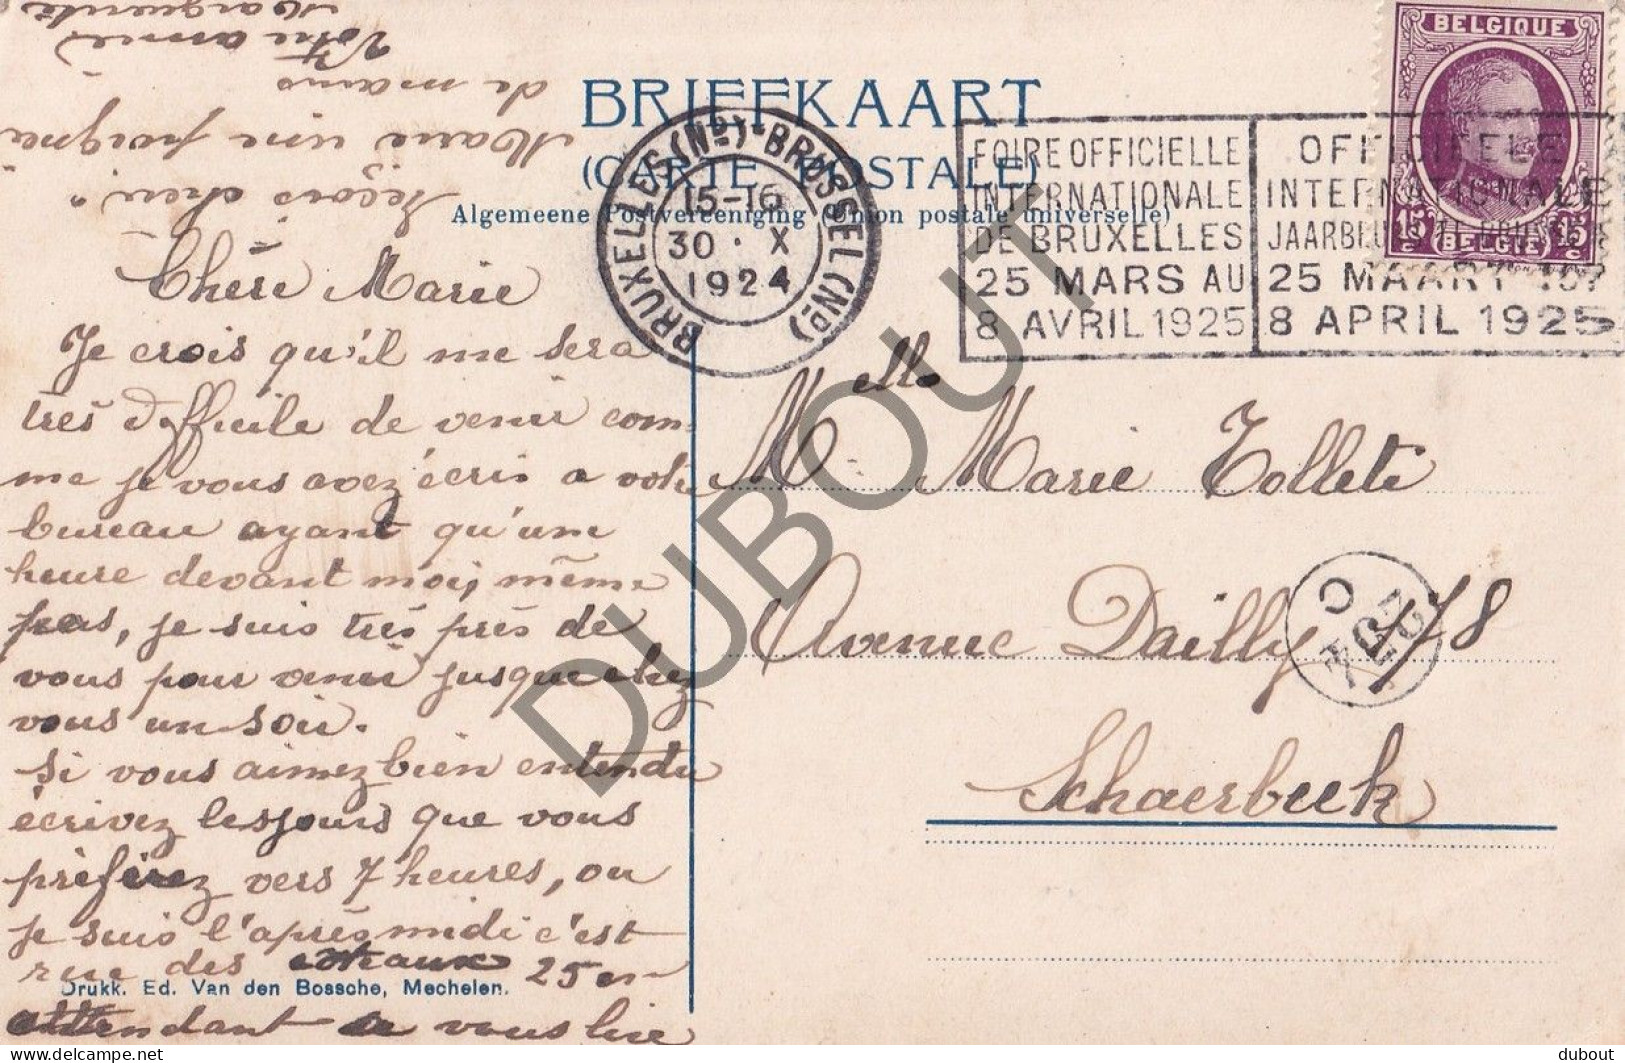 BRIEFKAART
(CARTE POSTALE)
Algemeene Postvereeniging (Union postale universelle)
BRUXELLES (ND)-BRUSSEL (ND)
15-16
30 · X
1924
FOIRE OFFICIELLE
INTERNATIONALE
DE BRUXELLES
25 MARS AU
8 AVRIL 1925
OFFICIEELE
INTERNATIONALE
JAARBEURS TE BRUSSEL
25 MAART TOT
8 APRIL 1925
BELGIQUE
15c
15c
BELGIË
Chère Marie
Je crois qu'il me sera
très difficile de venir com-
me je vous avez écris a votre
bureau ayant qu'une
heure devant moi, même
pas, je suis très près de
vous pour venir jusque chez
vous un soir.
Si vous aimez bien entendu
écrivez les jours que vous
préférez vers 7 heures, ou
je suis l'après midi c'est
rue des coteaux 25 en
attendant de vous lire
Reçois chere
Marie une poigne
de mains
Votre amie
Marguerite
Drukk. Ed. Van den Bossche, Mechelen.
Melle Marie Tollet
Avenue Dailly 178
Schaerbeek
DUBOUT
delcampe.net
dubout